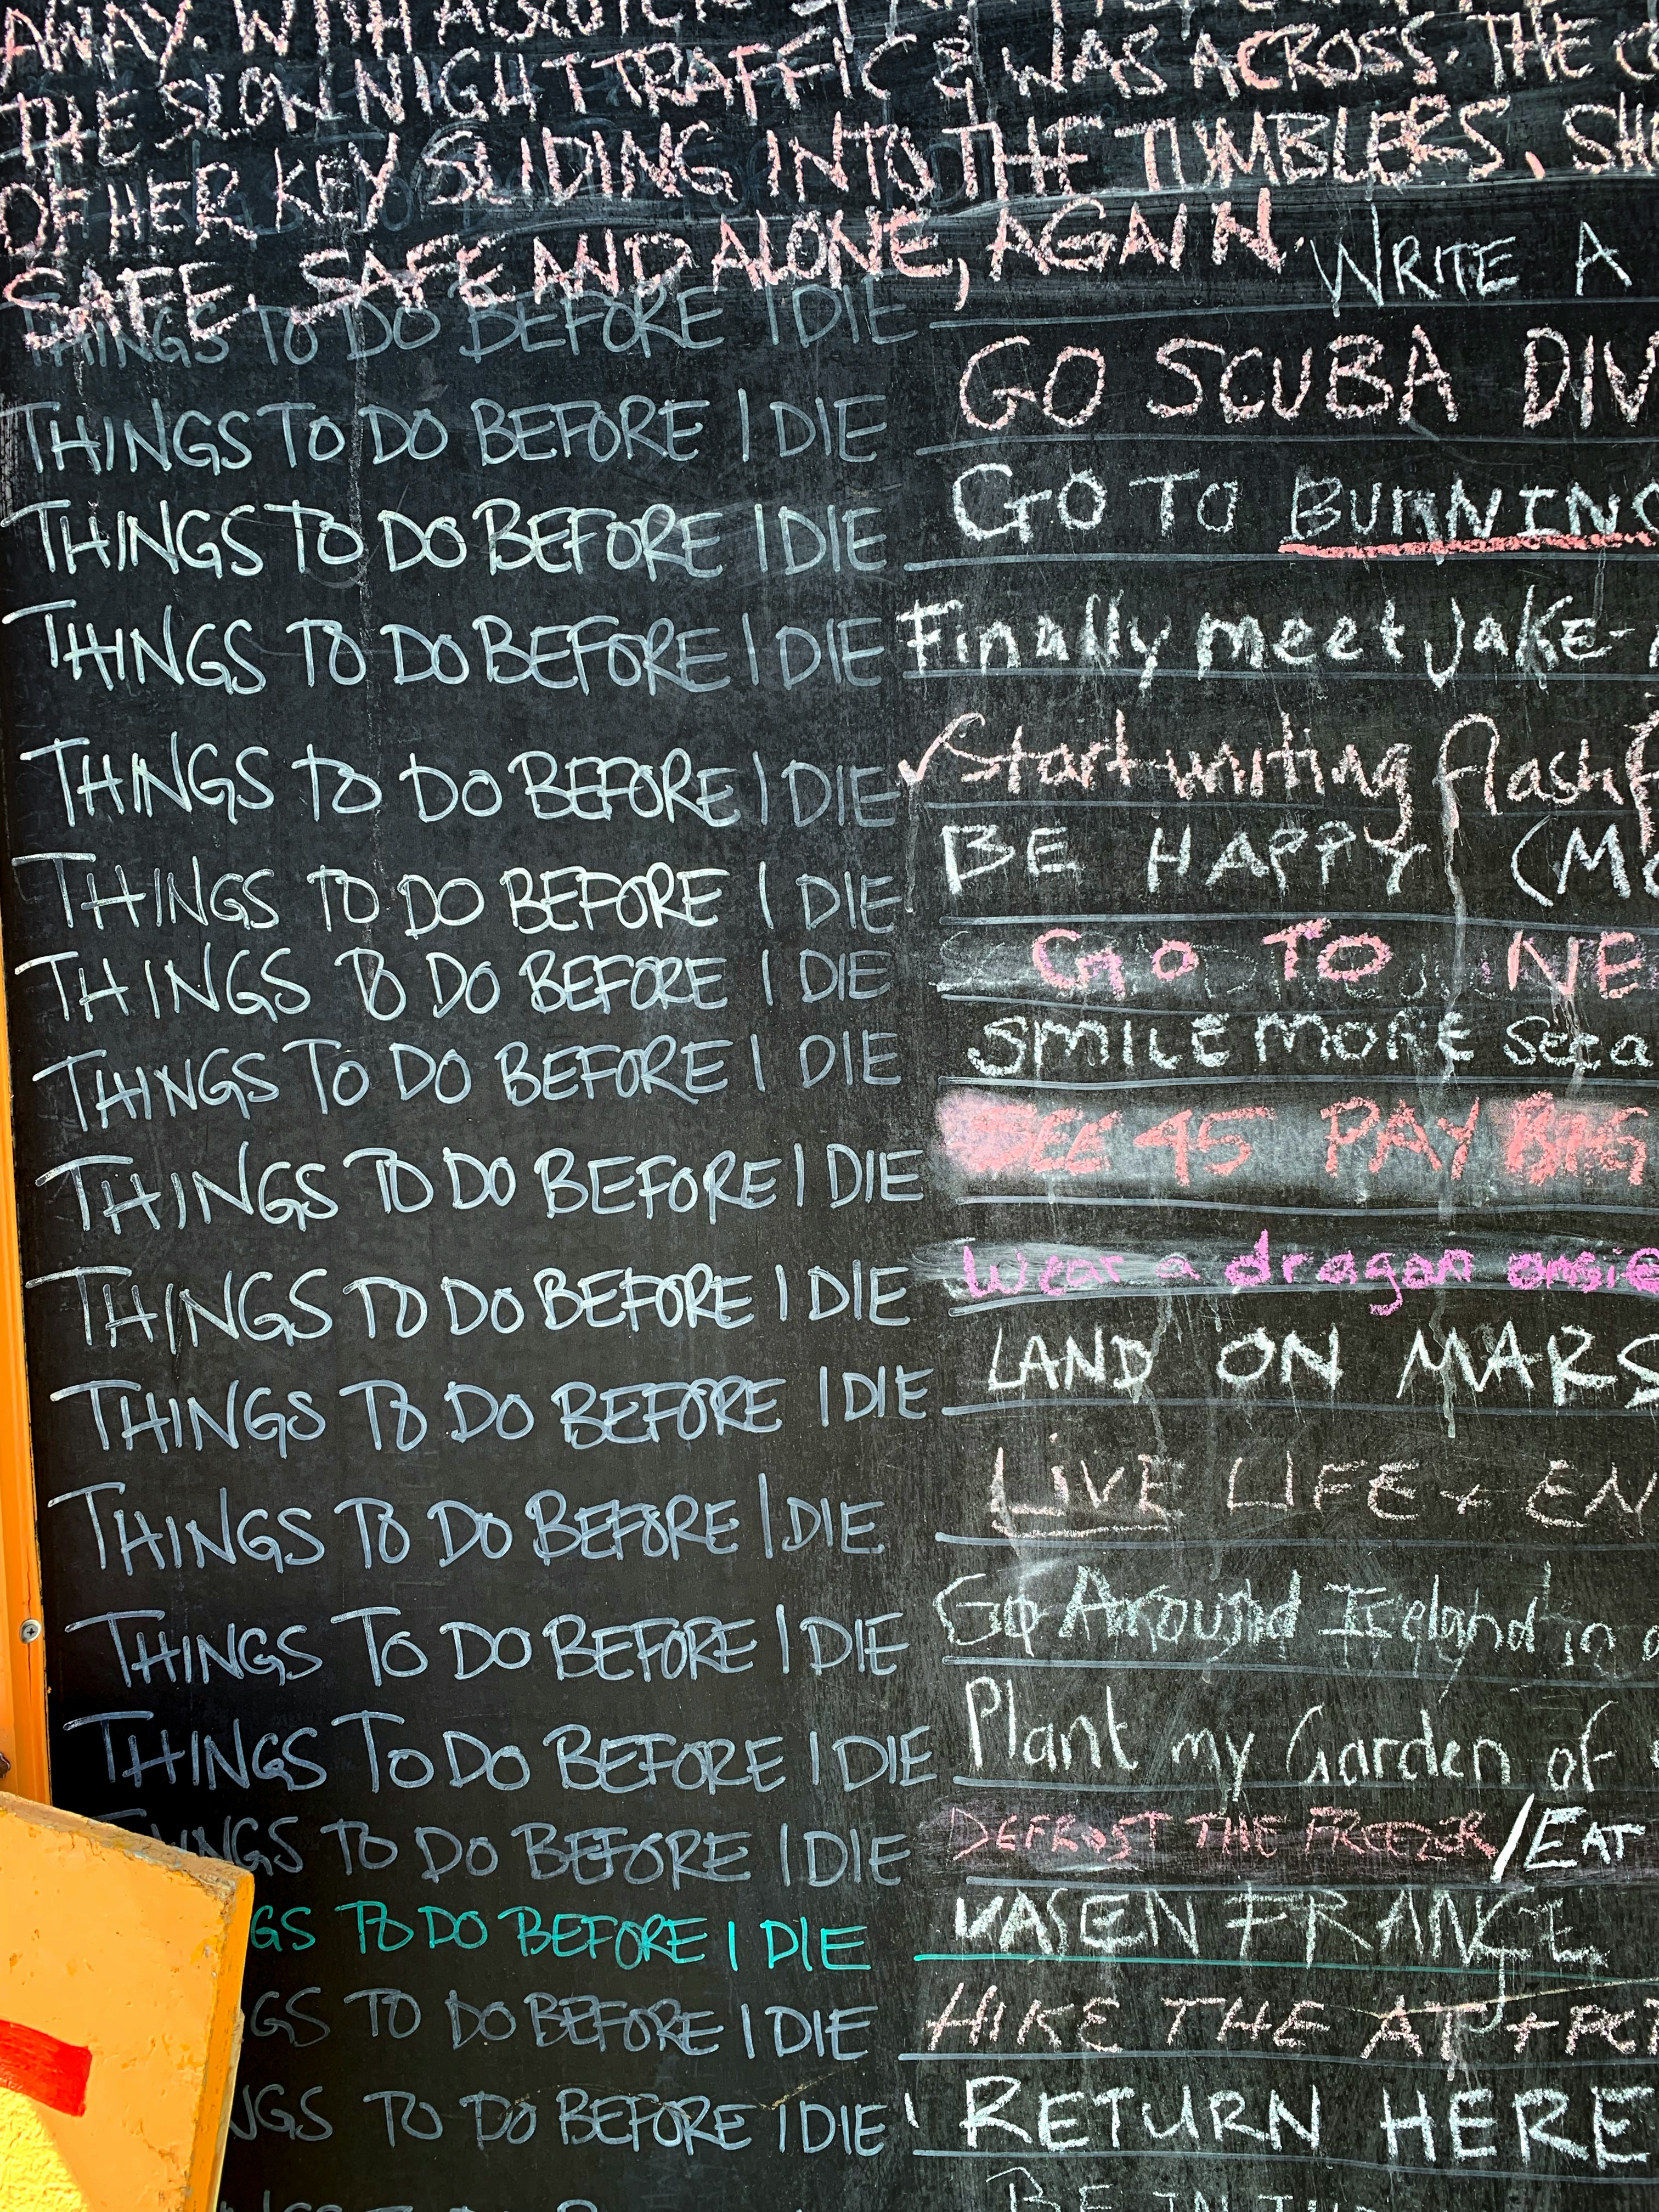 AWAY. WITH A
THE SLOW NIGHT TRAFFIC & WAS ACROSS. THE
OF HER KEY SLIDING INTO THE TUMBLERS. SH
SAFE. SAFE AND ALONE, AGAIN.
THINGS TO DO BEFORE I DIE WRITE A
THINGS TO DO BEFORE I DIE GO SCUBA DIV
THINGS TO DO BEFORE I DIE GO TO BURNING
THINGS TO DO BEFORE I DIE Finally meet Jake
THINGS TO DO BEFORE I DIE Start writing flash f
THINGS TO DO BEFORE I DIE BE HAPPY (MO
THINGS TO DO BEFORE I DIE GO TO NE
THINGS TO DO BEFORE I DIE SMILE MORE
THINGS TO DO BEFORE I DIE SEE 45 PAY BIG
THINGS TO DO BEFORE I DIE Wear a dragon onsie
THINGS TO DO BEFORE I DIE LAND ON MARS
THINGS TO DO BEFORE I DIE LIVE LIFE + EN
THINGS TO DO BEFORE I DIE Go Around Iceland in a
THINGS TO DO BEFORE I DIE Plant my Garden of
INGS TO DO BEFORE I DIE DEFROST THE FREEZER / EAT
GS TO DO BEFORE I DIE EN FRANCE
GS TO DO BEFORE I DIE HIKE THE AT + PCT
NGS TO DO BEFORE I DIE RETURN HERE
BE IN